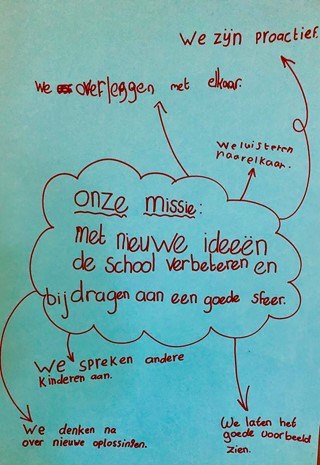 We zijn proactief.
We overleggen met elkaar.
We luisteren
naar elkaar.
onze missie:
Met nieuwe ideeën
de school verbeteren en
bijdragen aan een goede sfeer.
We spreken andere
kinderen aan.
We denken na
over nieuwe oplossingen.
We laten het
goede voorbeeld
zien.